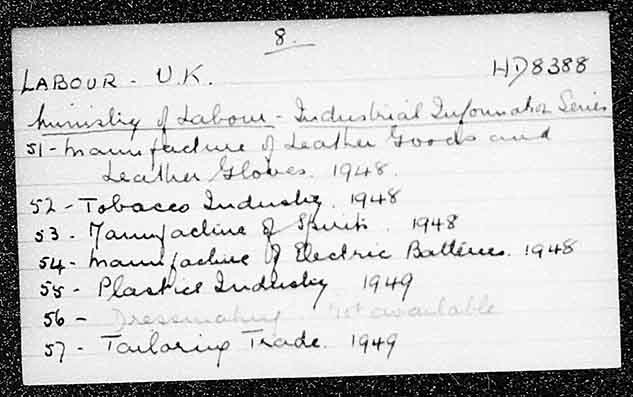 8.
LABOUR - U.K. HD8388
Ministry of Labour - Industrial Information Series
51 - Manufacture of Leather Goods and
Leather Gloves. 1948.
52 - Tobacco Industry. 1948
53 - Manufacture of Spirits. 1948
54 - Manufacture of Electric Batteries. 1948
55 - Plastics Industry 1949
56 - Dressmaking Not available
57 - Tailoring Trade. 1949